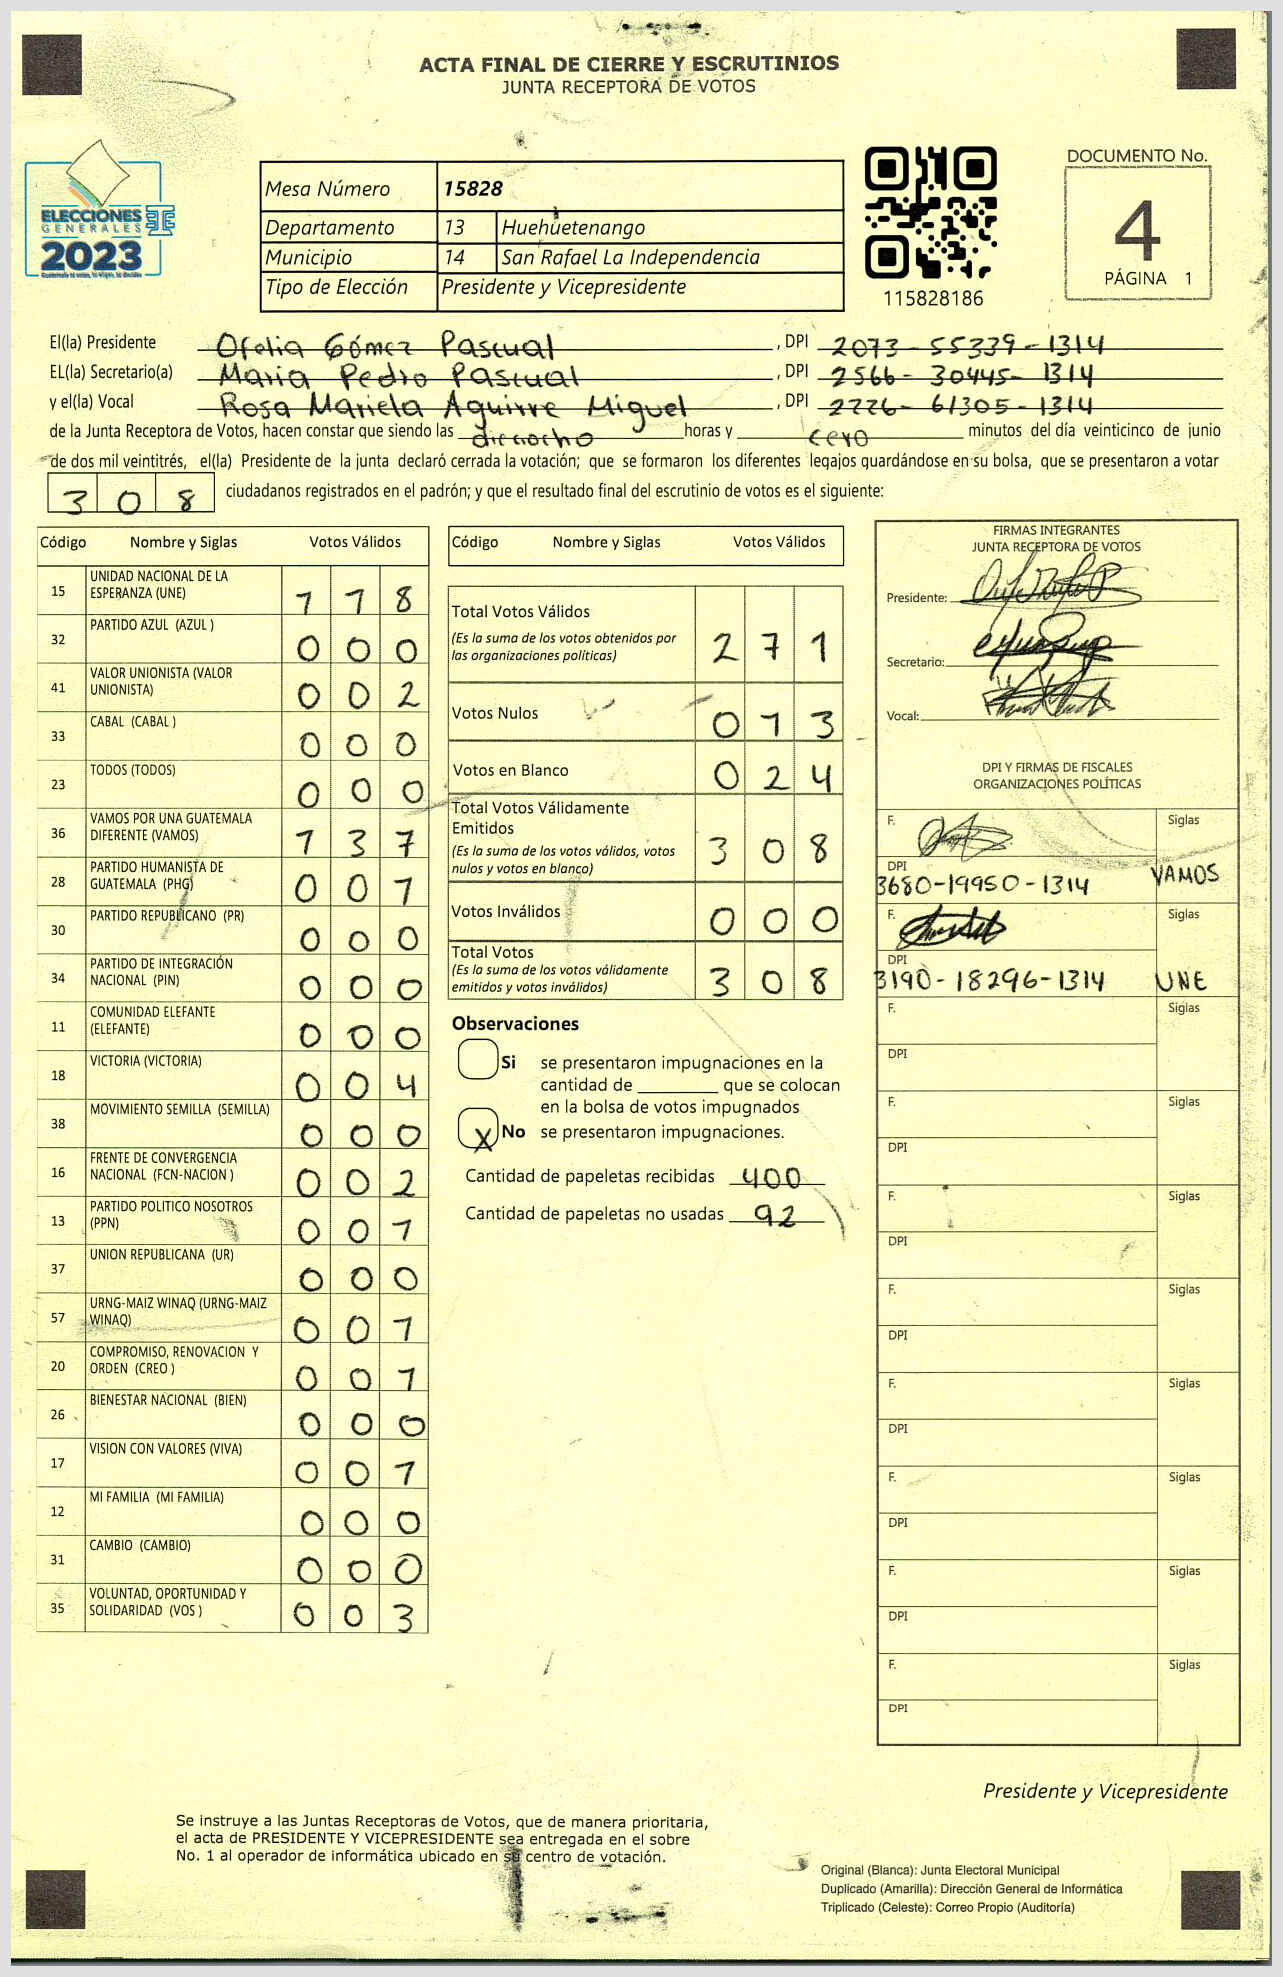 ACTA FINAL DE CIERRE Y ESCRUTINIOS
JUNTA RECEPTORA DE VOTOS
ELECCIONES
GENERALES
2023
Mesa Número 15828
Departamento 13 Huehuetenango
Municipio 14 San Rafael La Independencia
Tipo de Elección Presidente y Vicepresidente
115828186
DOCUMENTO No.
4
PÁGINA 1
El(la) Presidente Ofelia Gómez Pascual , DPI 2073-55339-1314
EL(la) Secretario(a) Maria Pedro Pascual , DPI 2566-30445-1314
y el(la) Vocal Rosa Mariela Aguirre Miguel , DPI 2226-61305-1314
de la Junta Receptora de Votos, hacen constar que siendo las dieciocho horas y cero minutos del día veinticinco de junio
de dos mil veintitrés, el(la) Presidente de la junta declaró cerrada la votación; que se formaron los diferentes legajos guardándose en su bolsa, que se presentaron a votar
308 ciudadanos registrados en el padrón; y que el resultado final del escrutinio de votos es el siguiente:
Código Nombre y Siglas Votos Válidos
15 UNIDAD NACIONAL DE LA ESPERANZA (UNE) 1 1 8
32 PARTIDO AZUL (AZUL ) 0 0 0
41 VALOR UNIONISTA (VALOR UNIONISTA) 0 0 2
33 CABAL (CABAL ) 0 0 0
23 TODOS (TODOS) 0 0 0
36 VAMOS POR UNA GUATEMALA DIFERENTE (VAMOS) 1 3 7
28 PARTIDO HUMANISTA DE GUATEMALA (PHG) 0 0 1
30 PARTIDO REPUBLICANO (PR) 0 0 0
34 PARTIDO DE INTEGRACIÓN NACIONAL (PIN) 0 0 0
11 COMUNIDAD ELEFANTE (ELEFANTE) 0 0 0
18 VICTORIA (VICTORIA) 0 0 4
38 MOVIMIENTO SEMILLA (SEMILLA) 0 0 0
16 FRENTE DE CONVERGENCIA NACIONAL (FCN-NACION ) 0 0 2
13 PARTIDO POLITICO NOSOTROS (PPN) 0 0 1
37 UNION REPUBLICANA (UR) 0 0 0
57 URNG-MAIZ WINAQ (URNG-MAIZ WINAQ) 0 0 1
20 COMPROMISO, RENOVACION Y ORDEN (CREO ) 0 0 1
26 BIENESTAR NACIONAL (BIEN) 0 0 0
17 VISION CON VALORES (VIVA) 0 0 1
12 MI FAMILIA (MI FAMILIA) 0 0 0
31 CAMBIO (CAMBIO) 0 0 0
35 VOLUNTAD, OPORTUNIDAD Y SOLIDARIDAD (VOS ) 0 0 3
Código Nombre y Siglas Votos Válidos
Total Votos Válidos 2 7 1
(Es la suma de los votos obtenidos por
las organizaciones políticas)
Votos Nulos 0 1 3
Votos en Blanco 0 2 4
Total Votos Válidamente
Emitidos 3 0 8
(Es la suma de los votos válidos, votos
nulos y votos en blanco)
Votos Inválidos 0 0 0
Total Votos 3 0 8
(Es la suma de los votos válidamente
emitidos y votos inválidos)
Observaciones
Si se presentaron impugnaciones en la
cantidad de ________ que se colocan
en la bolsa de votos impugnados
X No se presentaron impugnaciones.
Cantidad de papeletas recibidas 400
Cantidad de papeletas no usadas 92
FIRMAS INTEGRANTES
JUNTA RECEPTORA DE VOTOS
Presidente:
Secretario:
Vocal:
DPI Y FIRMAS DE FISCALES
ORGANIZACIONES POLÍTICAS
F. Siglas
DPI
3680-19950-1314 VAMOS
F. Siglas
DPI
3190-18296-1314 UNE
F. Siglas
DPI
F. Siglas
DPI
F. Siglas
DPI
F. Siglas
DPI
F. Siglas
DPI
F. Siglas
DPI
F. Siglas
DPI
F. Siglas
DPI
Presidente y Vicepresidente
Se instruye a las Juntas Receptoras de Votos, que de manera prioritaria,
el acta de PRESIDENTE Y VICEPRESIDENTE sea entregada en el sobre
No. 1 al operador de informática ubicado en su centro de votación.
Original (Blanca): Junta Electoral Municipal
Duplicado (Amarilla): Dirección General de Informática
Triplicado (Celeste): Correo Propio (Auditoría)